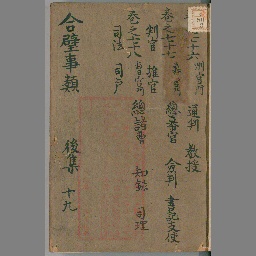 卷之七十六 州官門
通判 教授
卷之七十七 幕官門
總幕官 僉判 書記支使
判官 推官
卷之七十八 曹官門
總諸曹 知錄 司理
司法 司戶
合璧事類 後集 十九